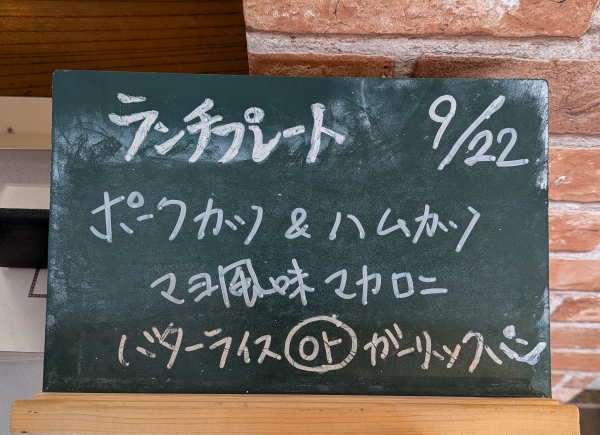 ランチプレート 9/22
ポークカツ & ハムカツ
マヨ風味 マカロニ
バターライス or ガーリックパン